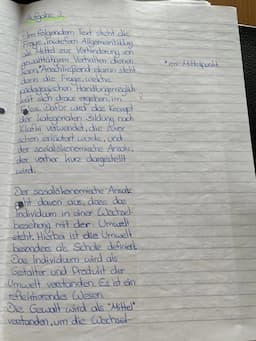 Aufgabe 2
Im folgendem Text steht die
Frage, inwiefern Allgemeinbildung
als Mittel zur Verhinderung von
gewalttätigem Verhalten dienen
kann,* Anschließend daran steht
dann die Frage, welche
pädagogischen Handlungsmöglich-
keit sich draus ergeben, im
Dafür wird das Konzept
der kategorialen Bildung nach
Klafki verwendet, die zuvor
schon erläutert wurde, und
der sozialökonomische Ansatz,
der vorher kurz dargestellt
wird.
*im Mittelpunkt
Der sozialökonomische Ansatz
geht davon aus, dass das
Individuum in einer Wechsel-
beziehung mit der Umwelt
steht. Hierbei ist die Umwelt
besonders als Schule definiert.
Das Individuum wird als
Gestalter und Produkt der
Umwelt verstanden. Es ist ein
reflektierendes Wesen.
Die Gewalt wird als "Mittel"
verstanden, um die Wechsel-